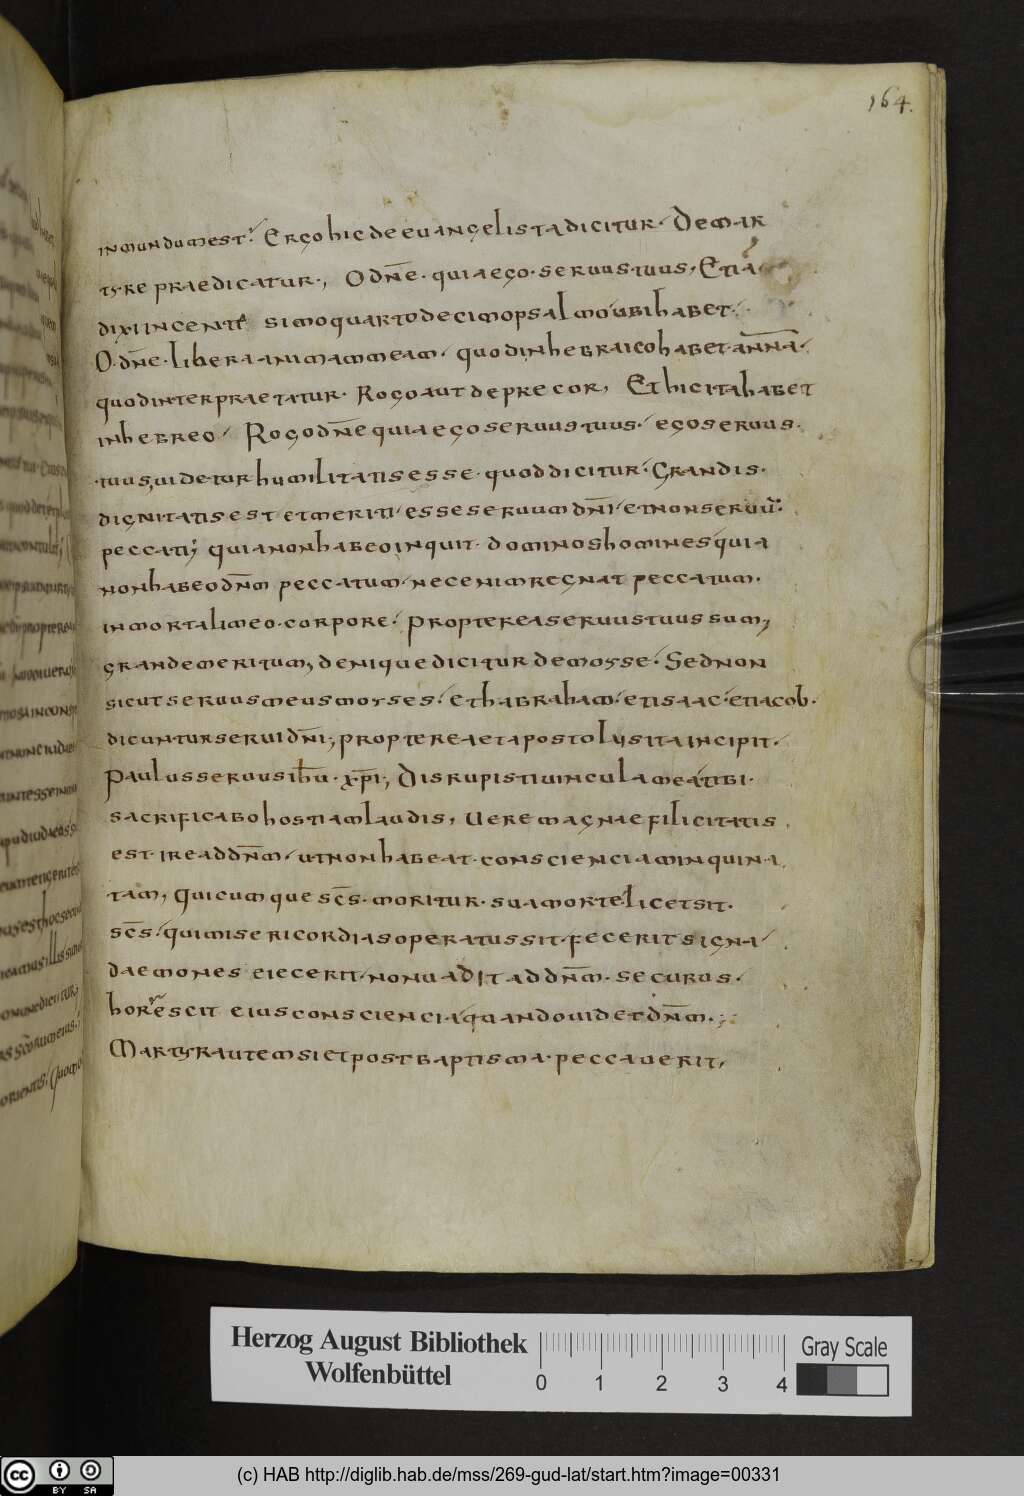 164.
in mundum est. Ergo hic de euangelista dicitur. De mar
tyre praedicatur., O dn̄e. quia ego. seruus tuus, Etia
dixi incenti simo quarto decimo psalmo ubi habet.
O. dn̄e. libera animam meam. quod in hebraico habet. ānnā.
quod interpraetatur. Rogo aut deprecor, Et hic ita habet
in hebreo. Rogo dn̄e quia ego seruus tuus. ego seruus.
tuus, uidetur humilitatis esse. quod dicitur. Grandis.
dignitatis est et meriti esse seruum dn̄i et non seruū.
peccati; quia non habeo inquit. dominos homines quia
non habeo dn̄m peccatum. nec enim regnat peccatum.
in mortali meo. corpore. propterea seruus tuus sum,
grande meritum, denique dicitur de moyse. Sed non
sicut seruus meus moyses. et habraham. et isaac. et iacob.
dicuntur serui dn̄i; propterea et apostolus ita incipit.
Paulus seruus ihū. xp̄i; Disrupisti uincula mea, tibi.
sacrificabo hostiam laudis, Uere magnae filicitatis
est. ire ad dn̄m. ut non habeat. conscienciam inquina
tam, quicumque sc̄s. moritur. sua morte. licet sit.
sc̄s. qui misericordias operatus sit. fecerit signa
daemones eiecerit. non uadit ad dn̄m. securus.
horrescit eius consciencia quando uidet dn̄m.;
Martyr autem si et post baptisma. peccauerit,
Herzog August Bibliothek
Wolfenbüttel
0 1 2 3 4
Gray Scale
(c) HAB http://diglib.hab.de/mss/269-gud-lat/start.htm?image=00331
cc BY SA